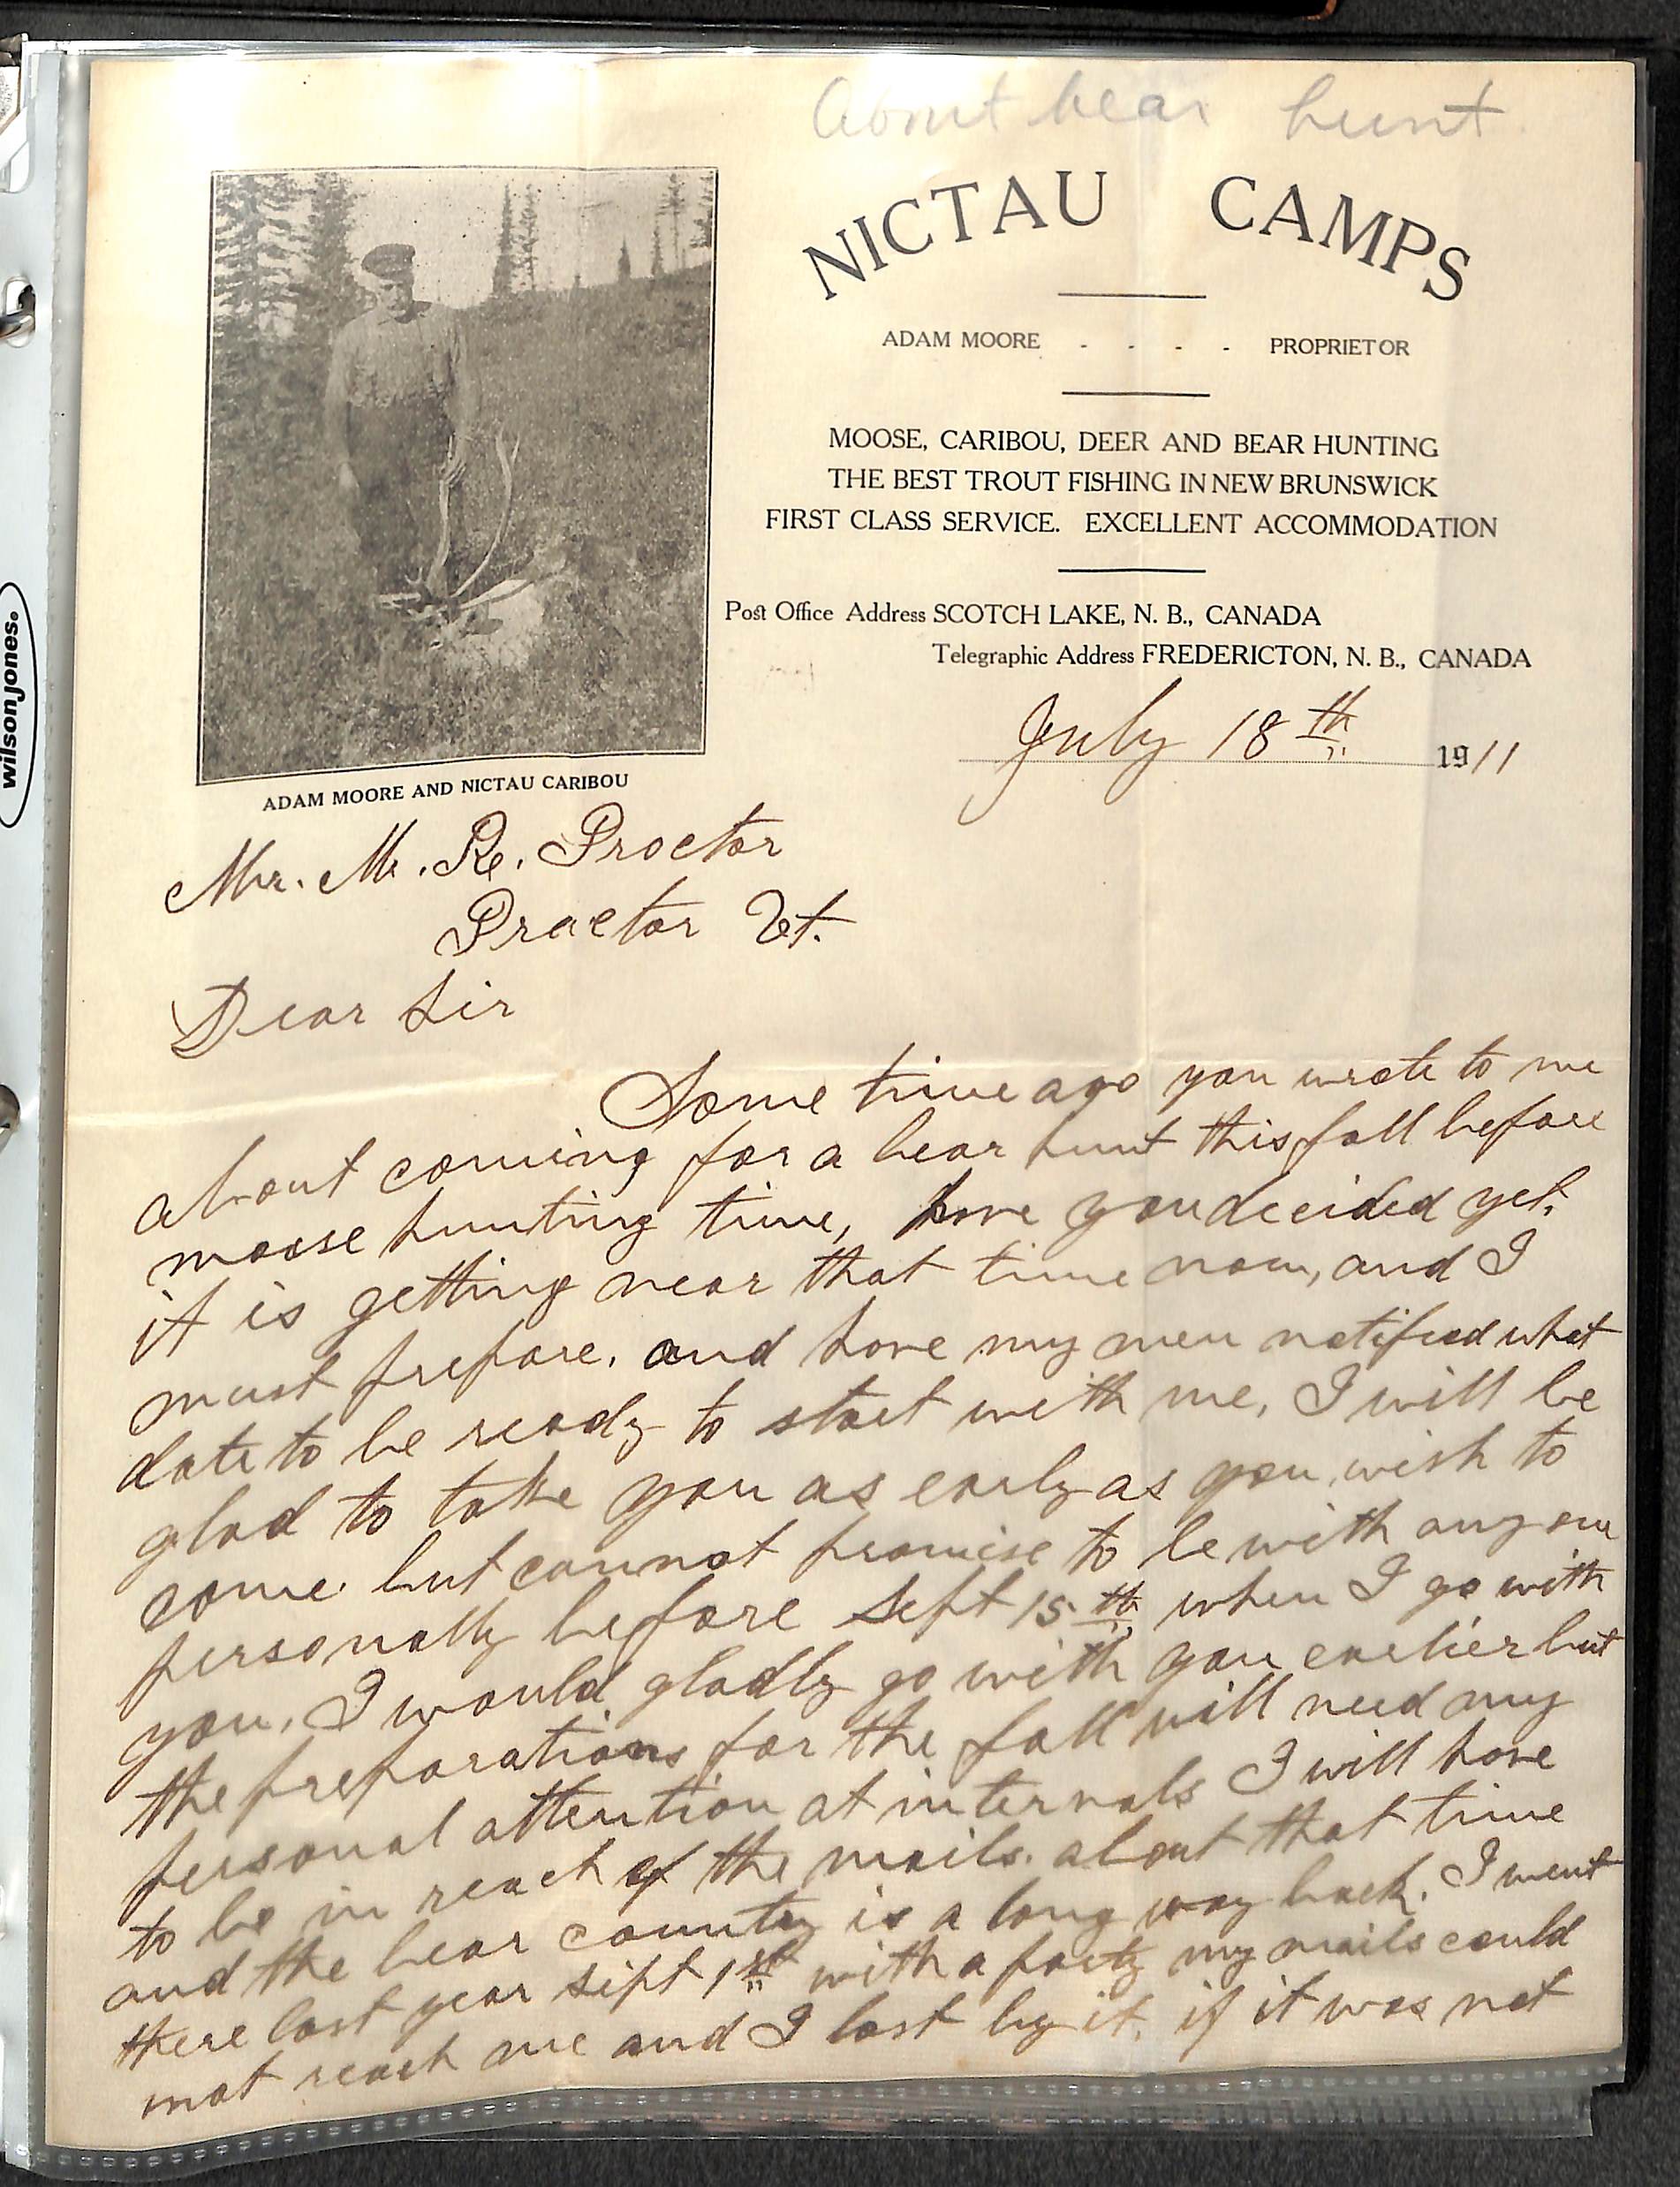 About bear hunt
NICTAU CAMPS
ADAM MOORE - - - - PROPRIETOR
MOOSE, CARIBOU, DEER AND BEAR HUNTING
THE BEST TROUT FISHING IN NEW BRUNSWICK
FIRST CLASS SERVICE. EXCELLENT ACCOMMODATION
Post Office Address SCOTCH LAKE, N. B., CANADA
Telegraphic Address FREDERICTON, N. B., CANADA
July 18th 1911
ADAM MOORE AND NICTAU CARIBOU
Mr. M. R. Proctor
Proctor Vt.
Dear Sir
Some time ago you wrote to me
about coming for a bear hunt this fall before
moose hunting time, have you decided yet.
it is getting near that time now, and I
must prepare. and have my men notified what
date to be ready to start with me, I will be
glad to take you as early as you wish to
come. but cannot promise to be with any one
personally before Sept 15th when I go with
you, I would gladly go with you earlier but
the preparations for the fall will need my
personal attention at intervals I will have
to be in reach of the mails. about that time
and the bear country is a long way back. I went
there last year Sept 1st with a party my mails could
not reach me and I lost by it. if it was not
wilsonjones®